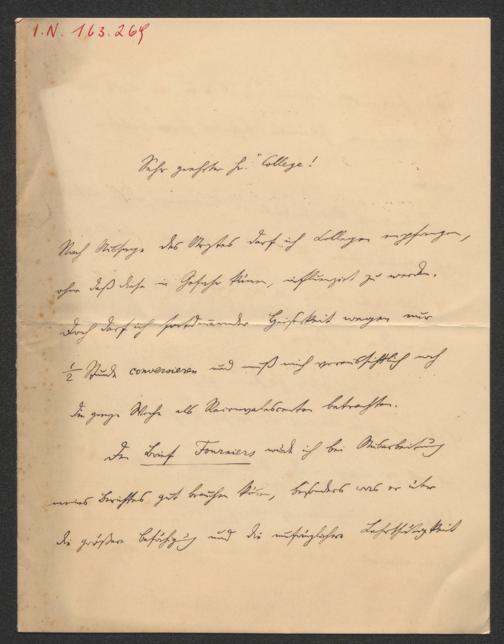 I.N. 163.269
Sehr geehrter Hr. College!
Nach Aussage des Arztes darf ich Collegen empfangen,
ohne daß diese in Gefahr kämen, inficirt zu werden.
Doch darf ich fortdauernder Heiserkeit wegen nur
1/2 Stunde conversieren und muß mich voraussichtlich noch
die ganze Woche als Reconvalescenten betrachten.
Den Brief Fourniers würde ich bei Ausarbeitung
meines Berichtes gut brauchen können, besonders was er über
die größere Befähigung und die Lehrthätigkeit